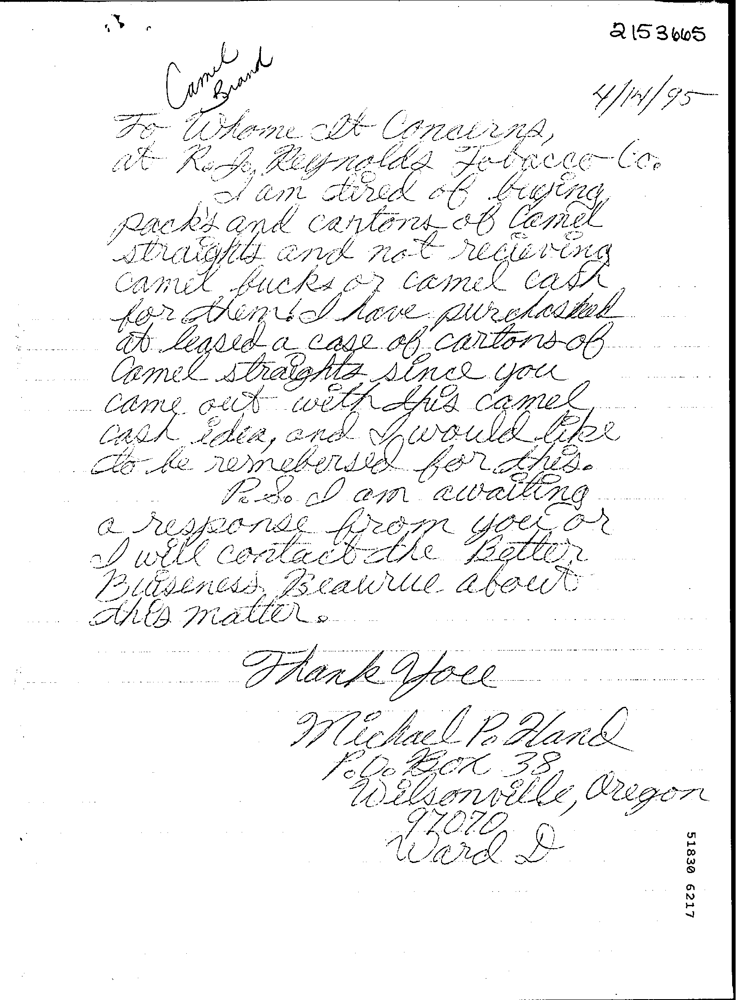 2153665
Camel
Brand
4/14/95
To Whome It Concerns,
at R. J. Reynolds Tobacco Co.
I am tired of buying
pack's and cartons of Camel
straights and not recieving
camel bucks or camel cash
for them! I have purchased
at leased a case of cartons of
Camel straights since you
came out with this camel
cash idea, and I would like
to be remebersed for this.
P.S. I am awaiting
a response from you or
I will contact the Better
Buiseness Beaurue about
this matter.
Thank You
Michael P. Hand
P.O. Box 38
Wilsonville, Oregon
97070
Ward D
51830 6217